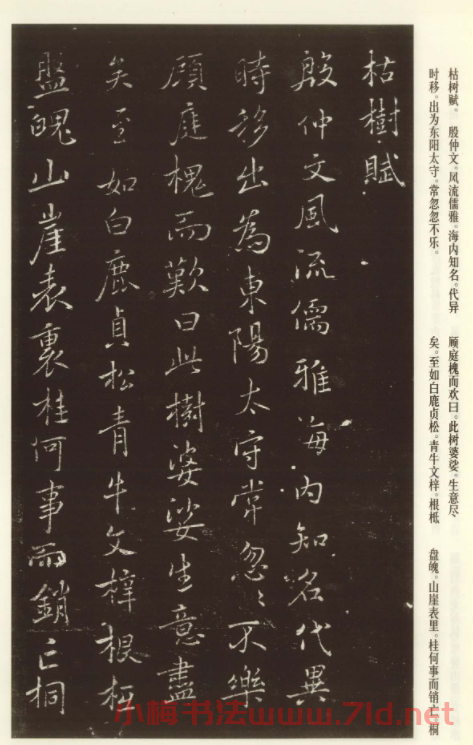 枯樹賦
殷仲文風流儒雅海内知名代異
時移出為東陽太守常忽〻不樂
顧庭槐而歎曰此樹婆娑生意盡
矣至如白鹿貞松青牛文梓根柢
盤魄山崖表裏桂何事而銷亡桐
枯树赋。 殷仲文。风流儒雅。海内知名。代异
时移。出为东阳太守。常忽忽不乐。
顾庭槐而欢曰。此树婆娑。生意尽
矣。至如白鹿贞松。青牛文梓。根柢
盘魄。山崖表里。桂何事而销亡。桐
小梅书法www.7ld.net